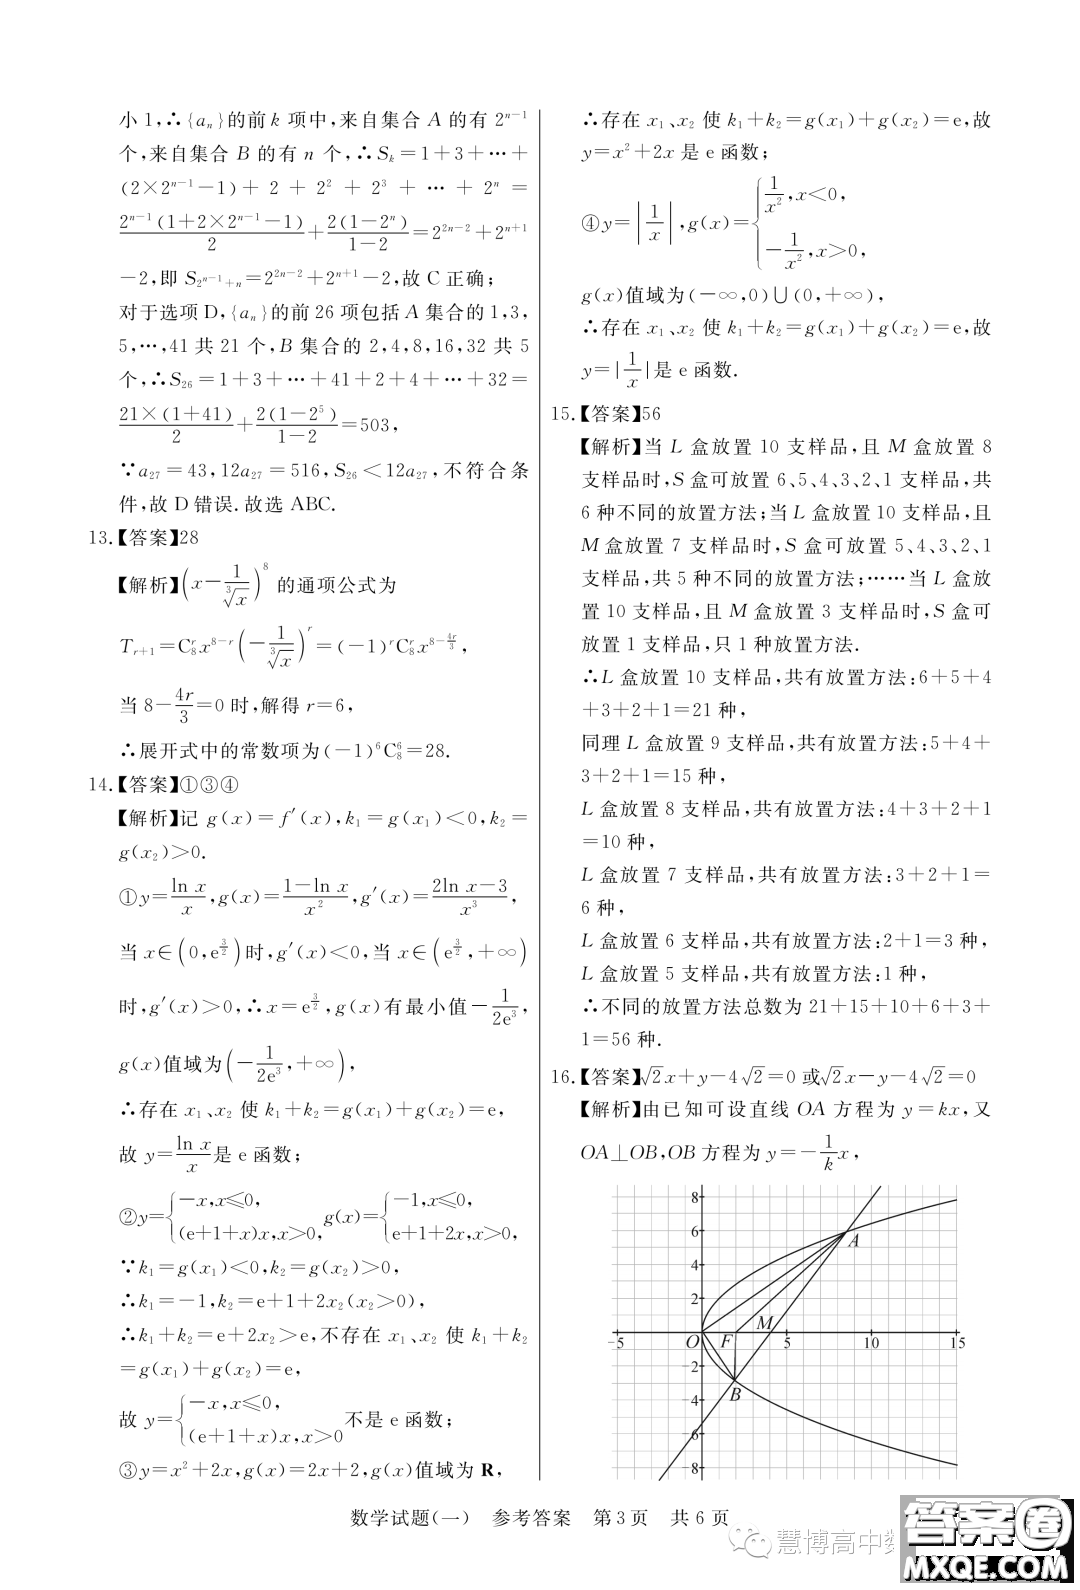 小 1,∴{aₙ}的前 k 项中,来自集合 A 的有 2ⁿ⁻¹
个,来自集合 B 的有 n 个,∴Sₖ=1+3+⋯+
(2×2ⁿ⁻¹-1)+2+2²+2³+⋯+2ⁿ=
2ⁿ⁻¹(1+2×2ⁿ⁻¹-1)/2+2(1-2ⁿ)/(1-2)=2²ⁿ⁻²+2ⁿ⁺¹
-2,即 S_{2ⁿ⁻¹+n}=2²ⁿ⁻²+2ⁿ⁺¹-2,故 C 正确;
对于选项 D,{aₙ}的前 26 项包括 A 集合的 1,3,
5,⋯,41 共 21 个,B 集合的 2,4,8,16,32 共 5
个,∴S₂₆=1+3+⋯+41+2+4+⋯+32=
21×(1+41)/2+2(1-2⁵)/(1-2)=503,
∵a₂₇=43,12a₂₇=516,S₂₆<12a₂₇,不符合条
件,故 D 错误.故选 ABC.
13.【答案】28
【解析】(x-1/∛x)⁸ 的通项公式为
T_{r+1}=C₈ʳx^{8-r}(-1/∛x)ʳ=(-1)ʳC₈ʳx^{8-4r/3},
当 8-4r/3=0 时,解得 r=6,
∴展开式中的常数项为(-1)⁶C₈⁶=28.
14.【答案】①③④
【解析】记 g(x)=f′(x),k₁=g(x₁)<0,k₂=
g(x₂)>0.
①y=ln x/x,g(x)=(1-ln x)/x²,g′(x)=(2ln x-3)/x³,
当 x∈(0,e^{3/2})时,g′(x)<0,当 x∈(e^{3/2},+∞)
时,g′(x)>0,∴x=e^{3/2},g(x)有最小值-1/(2e³),
g(x)值域为(-1/(2e³),+∞),
∴存在 x₁、x₂ 使 k₁+k₂=g(x₁)+g(x₂)=e,
故 y=ln x/x 是 e 函数;
②y={-x,x≤0, (e+1+x)x,x>0, g(x)={-1,x≤0, e+1+2x,x>0,
∵k₁=g(x₁)<0,k₂=g(x₂)>0,
∴k₁=-1,k₂=e+1+2x₂(x₂>0),
∴k₁+k₂=e+2x₂>e,不存在 x₁、x₂ 使 k₁+k₂
=g(x₁)+g(x₂)=e,
故 y={-x,x≤0, (e+1+x)x,x>0 不是 e 函数;
③y=x²+2x,g(x)=2x+2,g(x)值域为 R,
∴存在 x₁、x₂ 使 k₁+k₂=g(x₁)+g(x₂)=e,故
y=x²+2x 是 e 函数;
④y=|1/x|,g(x)={1/x²,x<0, -1/x²,x>0,
g(x)值域为(-∞,0)∪(0,+∞),
∴存在 x₁、x₂ 使 k₁+k₂=g(x₁)+g(x₂)=e,故
y=|1/x|是 e 函数.
15.【答案】56
【解析】当 L 盒放置 10 支样品,且 M 盒放置 8
支样品时,S 盒可放置 6、5、4、3、2、1 支样品,共
6 种不同的放置方法;当 L 盒放置 10 支样品,且
M 盒放置 7 支样品时,S 盒可放置 5、4、3、2、1
支样品,共 5 种不同的放置方法;⋯⋯当 L 盒放
置 10 支样品,且 M 盒放置 3 支样品时,S 盒可
放置 1 支样品,只 1 种放置方法.
∴L 盒放置 10 支样品,共有放置方法:6+5+4
+3+2+1=21 种,
同理 L 盒放置 9 支样品,共有放置方法:5+4+
3+2+1=15 种,
L 盒放置 8 支样品,共有放置方法:4+3+2+1
=10 种,
L 盒放置 7 支样品,共有放置方法:3+2+1=
6 种,
L 盒放置 6 支样品,共有放置方法:2+1=3 种,
L 盒放置 5 支样品,共有放置方法:1 种,
∴不同的放置方法总数为 21+15+10+6+3+
1=56 种.
16.【答案】√2x+y-4√2=0 或√2x-y-4√2=0
【解析】由已知可设直线 OA 方程为 y=kx,又
OA⊥OB,OB 方程为 y=-1/k x,
8
6
A
4
2
M
-5 O F 5 10 15
-2
B
-4
-6
8
数学试题(一) 参考答案 第 3 页 共 6 页
慧博高中数
答案圈
MXQE.COM